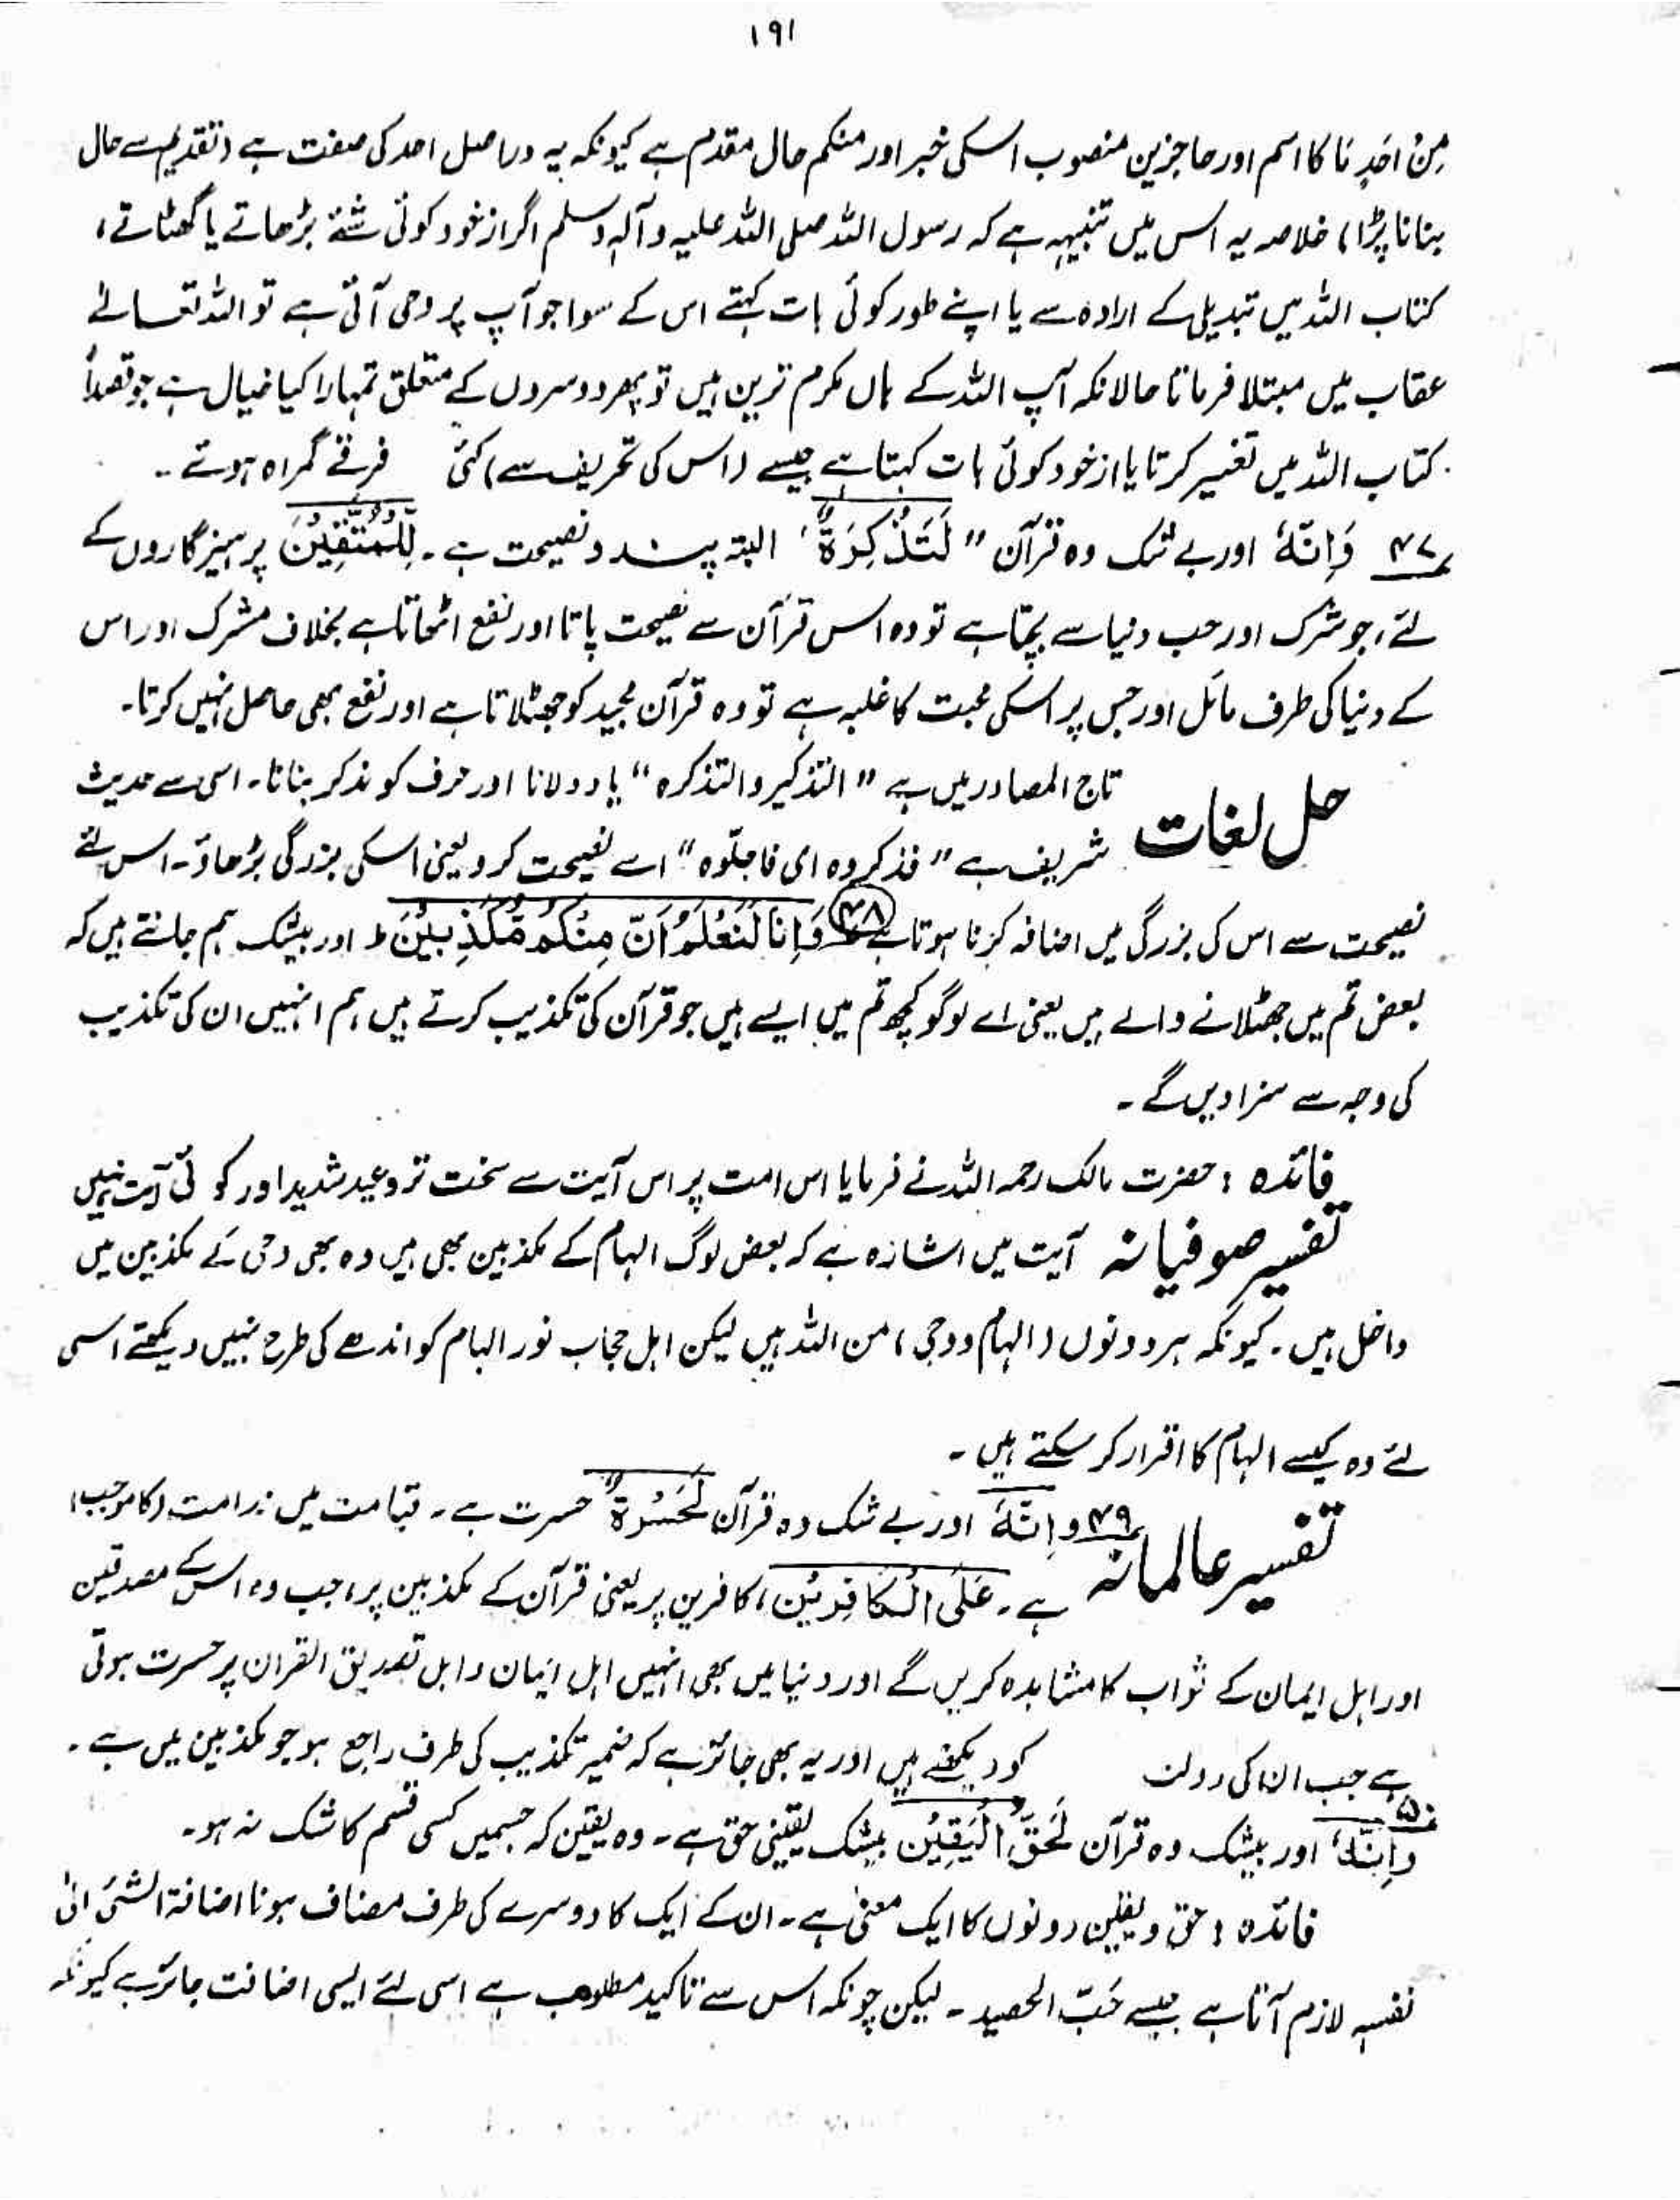 ۱۹۱
مِنْ اَحَدٍ مَا کا اسم اور حاجزین منصوب اسکی خبر اور منکم حال مقدم ہے کیونکہ یہ دراصل احد کی صفت ہے (تقدیم سے حال
بنانا پڑا) خلاصہ یہ اس میں تنبیہہ ہے کہ رسول اللہ صلی اللہ علیہ وآلہ وسلم اگر از خود کوئی شئے بڑھاتے یا گھٹاتے،
کتاب اللہ میں تبدیلی کے ارادہ سے یا اپنے طور کوئی بات کہتے اس کے سوا جو آپ پر وحی آتی ہے تو اللہ تعالےٰ
عقاب میں مبتلا فرماتا حالانکہ آپ اللہ کے ہاں مکرم ترین ہیں تو پھر دوسروں کے متعلق تمہارا کیا خیال ہے جو قصداً
کتاب اللہ میں تغیر کرتا یا از خود کوئی بات کہتا ہے جیسے (اس کی تحریف سے) کئی فرقے گمراہ ہوتے ۔۔
۴۷ وَاِنَّهٗ اور بے شک وہ قرآن " لَتَذْكِرَةٌ ' البتہ پند و نصیحت ہے ۔ لِّلْمُتَّقِيْنَ پرہیزگاروں کے
لئے، جو شرک اور حب دنیا سے بچتا ہے تو وہ اس قرآن سے نصیحت پاتا اور نفع اٹھاتا ہے بخلاف مشرک اور اس
کے دنیا کی طرف مائل اور جس پر اسکی محبت کا غلبہ ہے تو وہ قرآن مجید کو جھٹلاتا ہے اور نفع بھی حاصل نہیں کرتا۔
حل لغات تاج المصادر میں ہے " التذکیر والتذکرہ " یاد دلانا اور حرف کو مذکر بنانا۔ اسی سے حدیث
شریف ہے " فذکروہ ای فاجلّوہ " اسے نصیحت کرو یعنی اسکی بزرگی بڑھاؤ۔ اس لئے
نصیحت سے اس کی بزرگی میں اضافہ کرنا ہوتا ہے ۴۸ وَاِنَّا لَنَعْلَمُ اَنَّ مِنْكُمْ مُّكَذِّبِيْنَ ط اور بیشک ہم جانتے ہیں کہ
بعض تم میں جھٹلانے والے ہیں یعنی اے لوگو کچھ تم میں ایسے ہیں جو قرآن کی تکذیب کرتے ہیں ہم انہیں ان کی تکذیب
کی وجہ سے سزا دیں گے ۔
فائدہ : حضرت مالک رحمہ اللہ نے فرمایا اس امت پر اس آیت سے سخت تر وعید شدید اور کوئی آیت نہیں
تفسیر صوفیانہ آیت میں اشارہ ہے کہ بعض لوگ الہام کے مکذبین بھی ہیں وہ بھی وحی کے مکذبین میں
داخل ہیں ۔ کیونکہ ہر دونوں (الہام و وحی) من اللہ ہیں لیکن اہل حجاب نور الہام کو اندھے کی طرح نہیں دیکھتے اسی
لئے وہ کیسے الہام کا اقرار کر سکتے ہیں ۔
تفسیر عالمانہ ۴۹ وَاِنَّهٗ اور بے شک وہ قرآن لَحَسْرَةٌ حسرت ہے ۔ قیامت میں ندامت (کا موجب)
ہے ۔ عَلَى الْكَافِرِيْنَ ، کافرین پر یعنی قرآن کے مکذبین پر، جب وہ اس کے مصدقین
اور اہل ایمان کے ثواب کا مشاہدہ کریں گے اور دنیا میں بھی انہیں اہل ایمان و اہل تصدیق القرآن پر حسرت ہوتی
ہے جب ان کی دولت کو دیکھتے ہیں اور یہ بھی جائز ہے کہ ضمیر تکذیب کی طرف راجع ہو جو مکذبین میں ہے ۔
۵۰ وَاِنَّهٗ اور بیشک وہ قرآن لَحَقُّ الْيَقِيْن بیشک یقینی حق ہے ۔ وہ یقین کہ جسمیں کسی قسم کا شک نہ ہو ۔
فائدہ : حق و یقین دونوں کا ایک معنیٰ ہے ۔ ان کے ایک کا دوسرے کی طرف مضاف ہونا اضافۃ الشئ الیٰ
نفسہٖ لازم آتا ہے جیسے حَبّ الحصید ۔ لیکن چونکہ اس سے تاکید مطلوب ہے اسی لئے ایسی اضافت جائز ہے کیونکہ